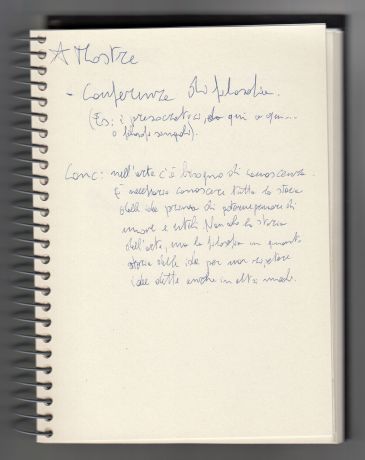 ★ Mostre
- Conferenze di filosofia.
(Es: i presocratici, da qui a qui...
o filosofi semplici).
Conc: nell'arte c'è bisogno di conoscenza.
È necessario conoscere tutta la storia
delle idee prima di poterne pensare di
nuove e utili. Non solo la storia
dell'arte, ma la filosofia in quanto
storia delle idee per non ripetere
idee dette anche in altri modi.